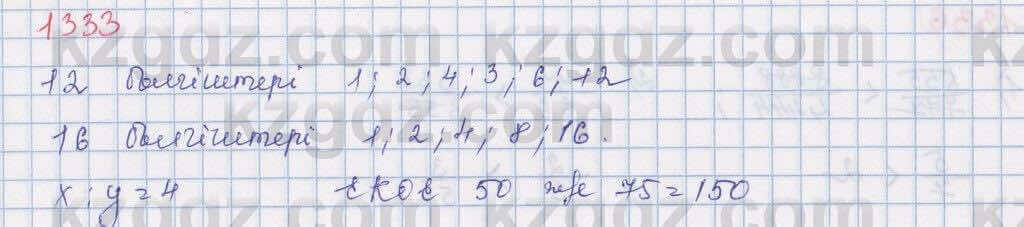 1333
12 бөлгіштері 1; 2; 4; 3; 6; 12
16 бөлгіштері 1; 2; 4; 8; 16.
x : y = 4 ЕКОЕ 50 және 75 = 150
kzgdz.com